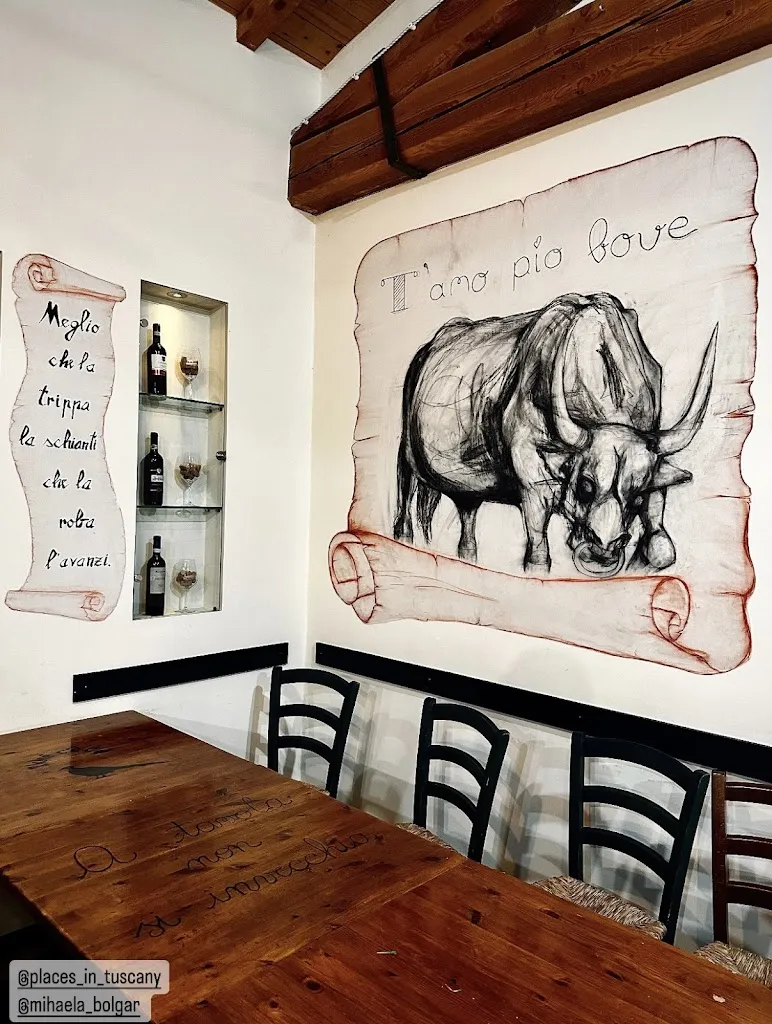 T'amo pio bove
Meglio
che la
trippa
la schianti
che la
roba
l'avanzi.
A tavola
non
si invecchia
@places_in_tuscany
@mihaela_bolgar